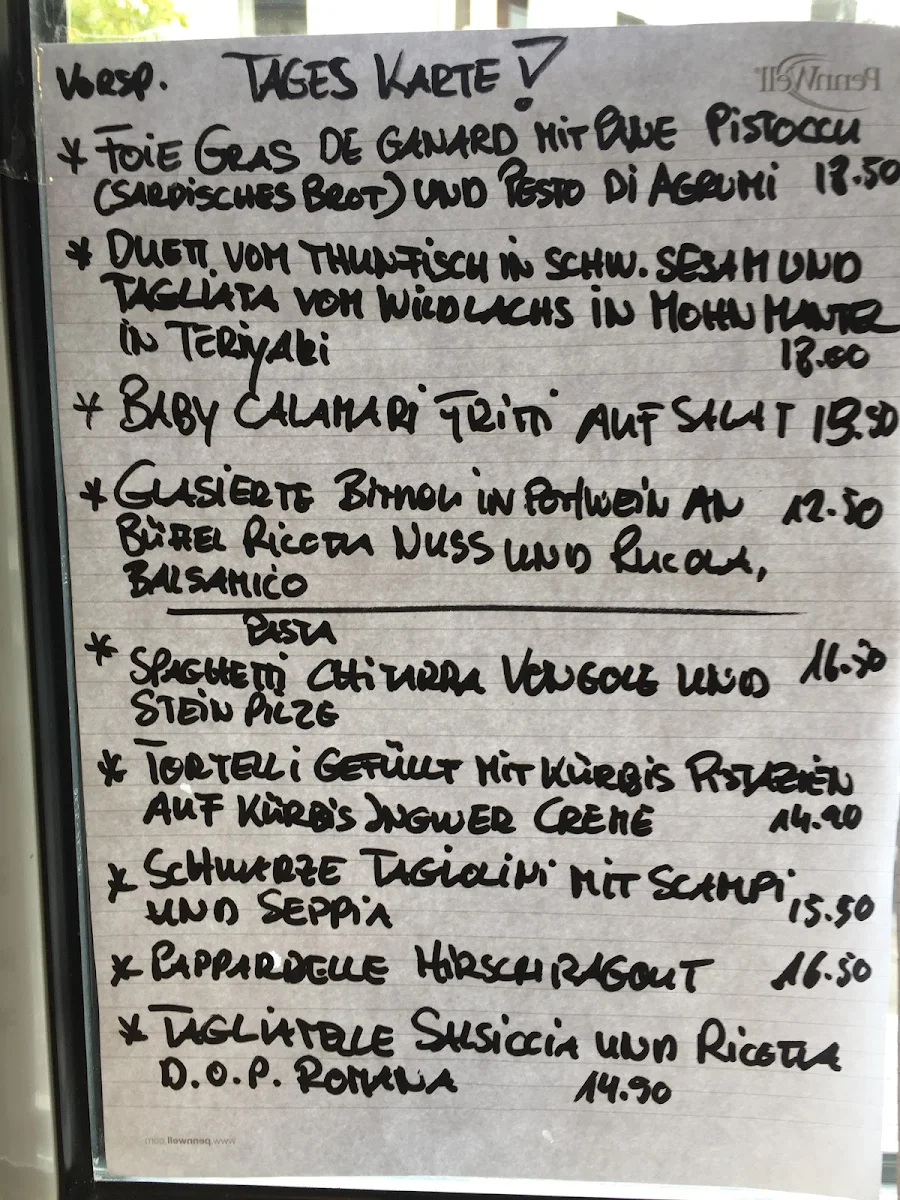 VORSP. TAGES KARTE!
PennWell
* FOIE GRAS DE GANARD MIT PANE PISTOCCU
(SARDISCHES BROT) UND PESTO DI AGRUMI 18.50
* DUETT VOM THUNFISCH IN SCHW. SESAM UND
TAGLIATA VOM WILDLACHS IN MOHN MANTEL
IN TERIYAKI
18.00
* BABY CALAMARI FRITTI AUF SALAT
* GLASIERTE IN PORTWEIN AN 12.50
BÜFFEL RICOTTA NUSS UND RUCOLA,
BALSAMICO
PASTA
* SPAGHETTI CHITARRA VONGOLE UND 16.50
STEIN PILZE
* TORTELLI GEFÜLLT MIT KÜRBIS PISTAZIEN
AUF KÜRBIS INGWER CREME 14.90
* SCHWARZE TAGIOLINI MIT SCAMPI
UND SEPPIA 15.50
* PAPPARDELLE HIRSCHRAGOUT 16.50
* TAGLIATELLE SALSICCIA UND RICOTTA
D.O.P. ROMANA 14.90
www.pennwell.com